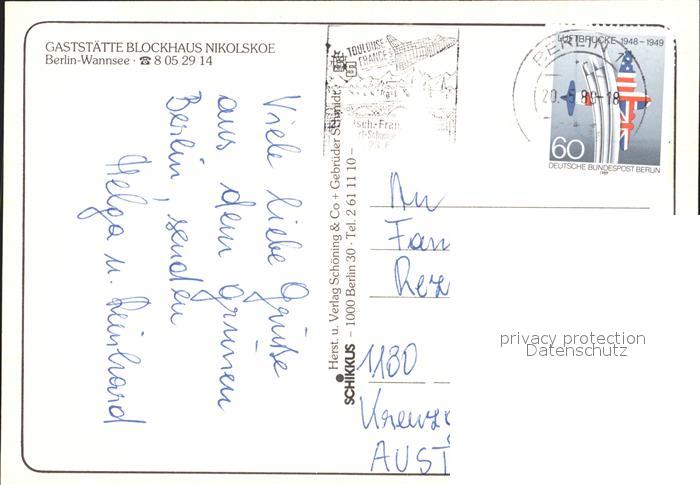 GASTSTÄTTE BLOCKHAUS NIKOLSKOE
Berlin-Wannsee · ☎ 8 05 29 14
Viele liebe Grüße
aus dem grünen
Berlin, senden
Helga u. Leinhard
Herst. u. Verlag Schöning & Co + Gebrüder Schmidt
SCHIKKUS – 1000 Berlin 30 · Tel. 2 61 11 10 –
TOULOUSE
FRANCE
BERLIN
20.-5.89-18
LUFTBRÜCKE 1948–1949
60
DEUTSCHE BUNDESPOST BERLIN
1989
An
Fam
1180
AUST
privacy protection
Datenschutz